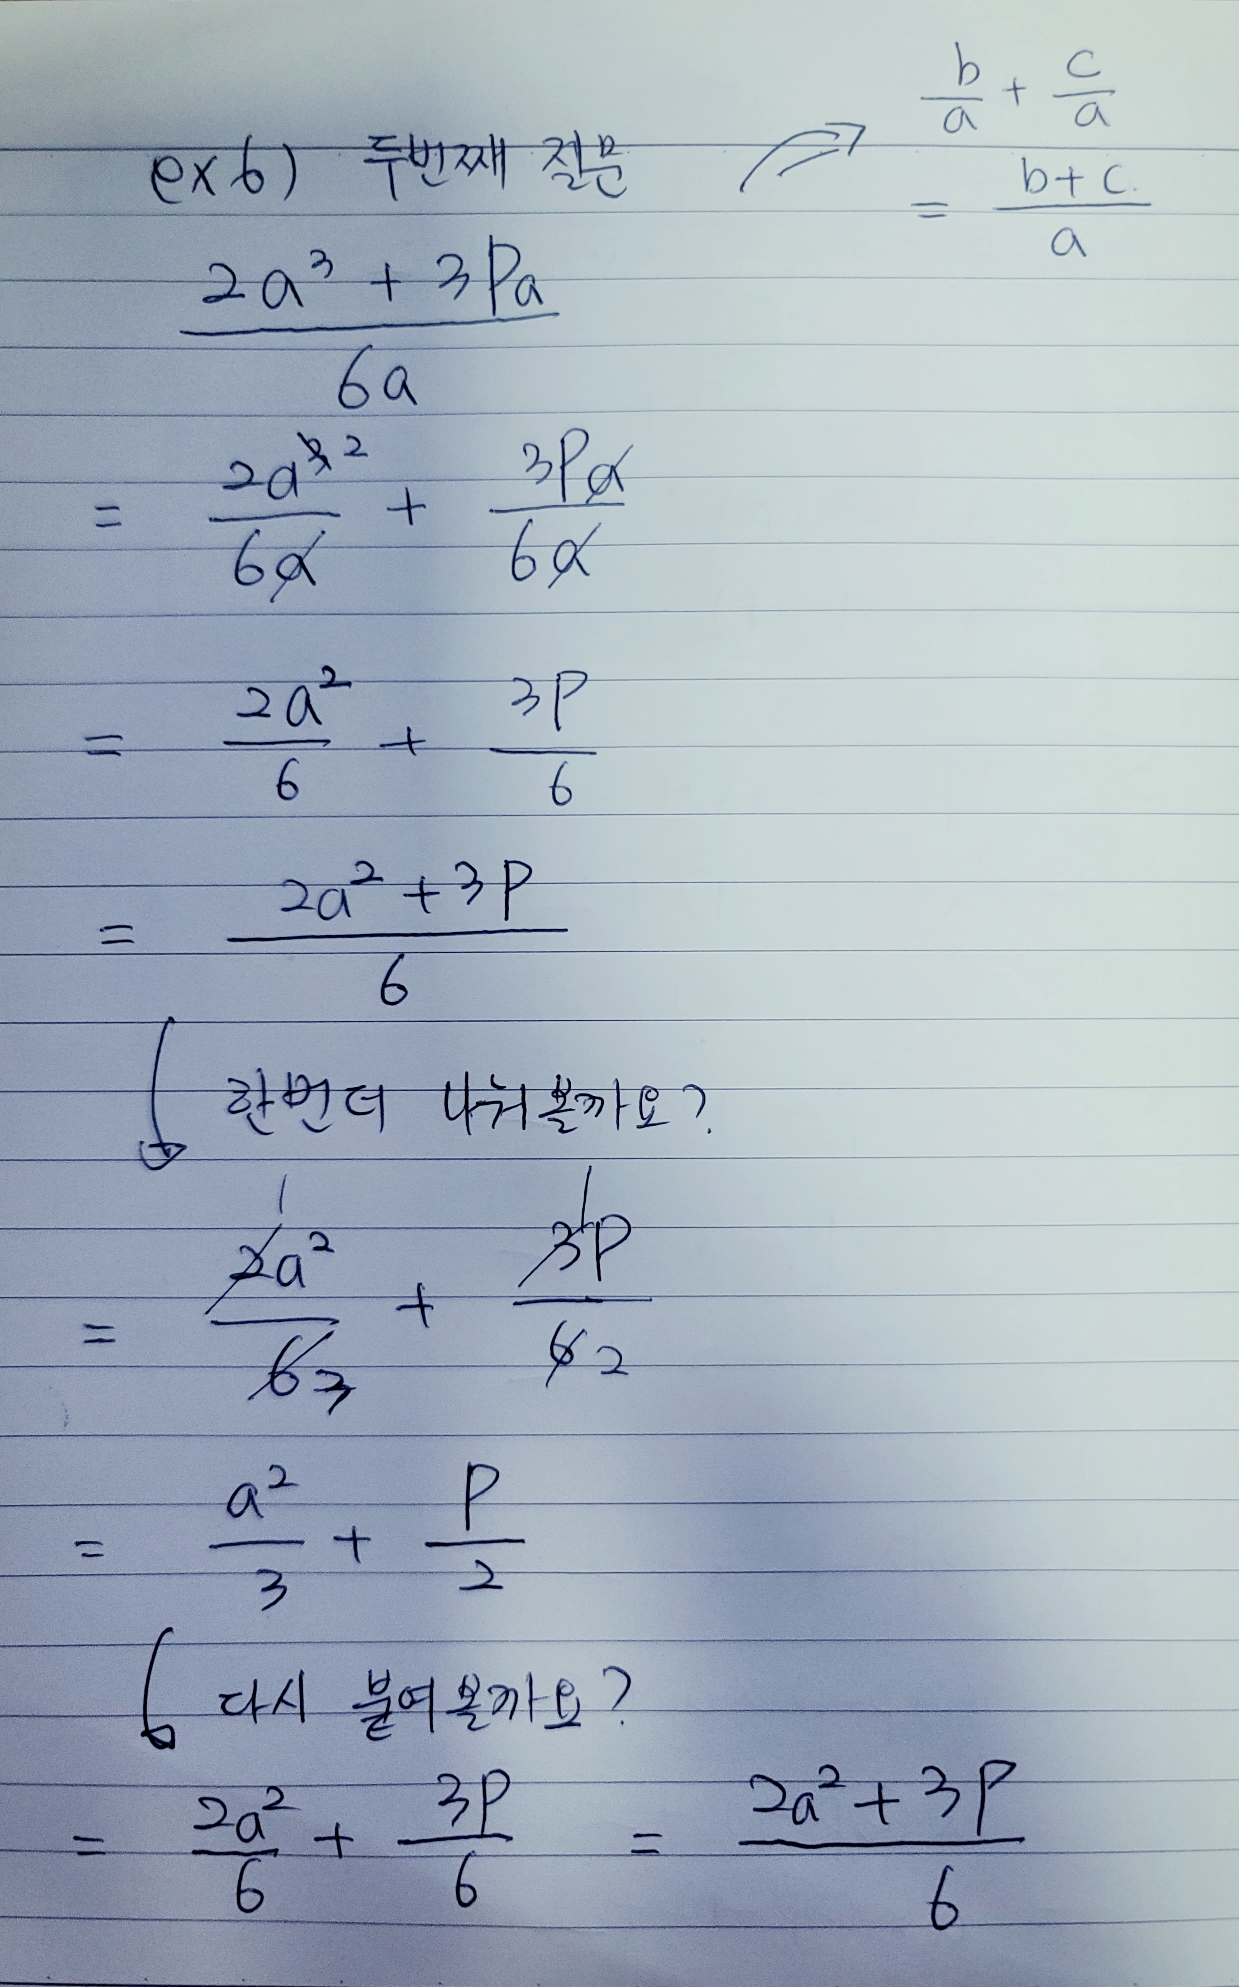 b/a + c/a
= (b+c)/a
ex 6) 두번째 질문
(2a³ + 3Pa)/6a
= 2a³ ²/6a + 3Pa/6a
= 2a²/6 + 3P/6
= (2a² + 3P)/6
한번더 나눠볼까요?
= 1 2a²/6 3 + 1 3P/6 2
= a²/3 + P/2
다시 붙여볼까요?
= 2a²/6 + 3P/6 = (2a² + 3P)/6